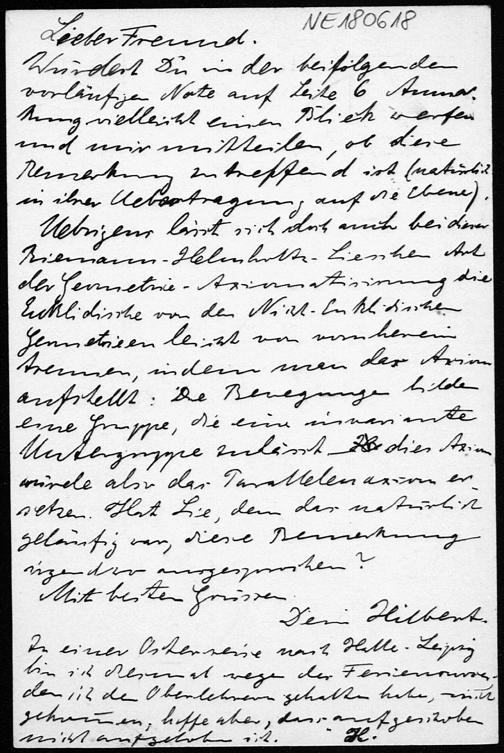 NE180618
Lieber Freund.
Würdest Du in der beifolgenden
vorläufigen Note auf Seite 6 Anmer-
kung vielleicht einen Blick werfen
und mir mitteilen, ob diese
Bemerkung zutreffend ist (natürlich
in ihrer Uebertragung auf die Ebene).
Uebrigens lässt sich doch auch bei dieser
Riemann-Helmholtz-Lieschen Art
der Geometrie-Axiomatisirung die
Euklidische von den Nicht-Euklidischen
Geometrieen leicht von vornherein
trennen, indem man das Axiom
aufstellt: Die Bewegungen bilden
eine Gruppe, die eine invariante
Untergruppe zulässt – dies Axiom
würde also das Parallelenaxiom er-
setzen. Hat Lie, dem das natürlich
geläufig war, diese Bemerkung
irgendwo ausgesprochen?
Mit besten Grüssen
Dein Hilbert.
Zu einer Osterreise nach Halle-Leipzig
bin ich diesmal wegen des
den ich den Oberlehrern gehalten habe, nicht
gekommen; hoffe aber, dass aufgeschoben
nicht aufgehoben ist. H.